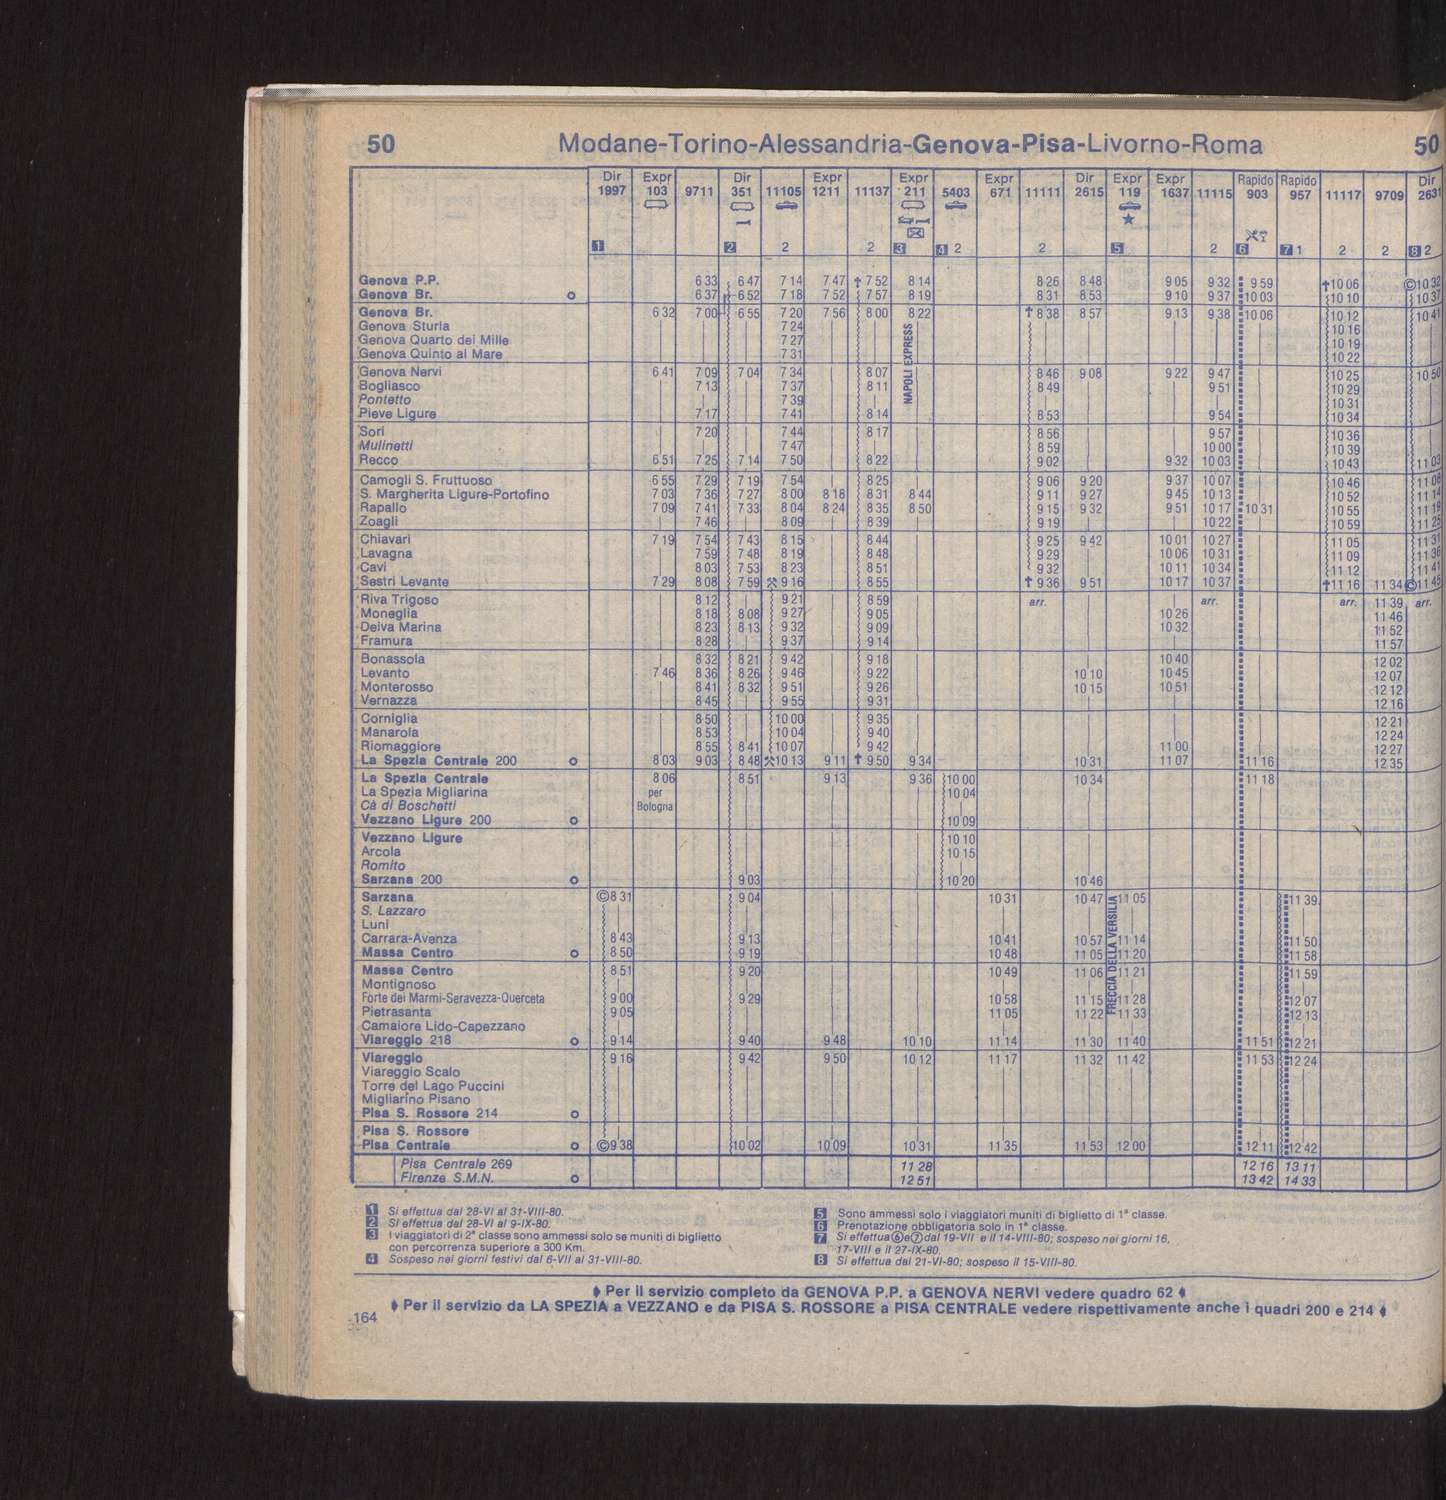 50 Modane-Torino-Alessandria-Genova-Pisa-Livorno-Roma 50
Dir Expr Dir Expr Expr Expr Dir Expr Expr Rapido Rapido Dir
1997 103 9711 351 11105 1211 11137 211 5403 671 11111 2615 119 1637 11115 903 957 11117 9709 2631
1 2 2 2 3 4 2 2 5 2 6 7 1 2 2 8 2
Genova P.P. 6 33 6 47 7 14 7 47 ✝ 7 52 8 14 8 26 8 48 9 05 9 32 9 59 ✝10 06 ©10 32
Genova Br. 6 37 6 52 7 18 7 52 7 57 8 19 8 31 8 53 9 10 9 37 10 03 10 10 10 37
Genova Br. 6 32 7 00 6 55 7 20 7 56 8 00 8 22 ✝ 8 38 8 57 9 13 9 38 10 06 10 12 10 41
Genova Sturla 7 24 10 16
Genova Quarto dei Mille 7 27 10 19
Genova Quinto al Mare 7 31 10 22
NAPOLI EXPRESS
Genova Nervi 6 41 7 09 7 04 7 34 8 07 8 46 9 08 9 22 9 47 10 25 10 50
Bogliasco 7 13 7 37 8 11 8 49 9 51 10 29
Pontetto 7 39 10 31
Pieve Ligure 7 17 7 41 8 14 8 53 9 54 10 34
Sori 7 20 7 44 8 17 8 56 9 57 10 36
Mulinetti 7 47 8 59 10 00 10 39
Recco 6 51 7 25 7 14 7 50 8 22 9 02 9 32 10 03 10 43 11 03
Camogli S. Fruttuoso 6 55 7 29 7 19 7 54 8 25 9 06 9 20 9 37 10 07 10 46 11 08
S. Margherita Ligure-Portofino 7 03 7 36 7 27 8 00 8 18 8 31 8 44 9 11 9 27 9 45 10 13 10 52 11 14
Rapallo 7 09 7 41 7 33 8 04 8 24 8 35 8 50 9 15 9 32 9 51 10 17 10 31 10 55 11 19
Zoagli 7 46 8 09 8 39 9 19 10 22 10 59 11 25
Chiavari 7 19 7 54 7 43 8 15 8 44 9 25 9 42 10 01 10 27 11 05 11 31
Lavagna 7 59 7 48 8 19 8 48 9 29 10 06 10 31 11 09 11 36
Cavi 8 03 7 53 8 23 8 51 9 32 10 11 10 34 11 12 11 41
Sestri Levante 7 29 8 08 7 59 ⚒ 9 16 8 55 ✝ 9 36 9 51 10 17 10 37 ✝11 16 11 34 ©11 45
Riva Trigoso 8 12 9 21 8 59 arr. arr. arr. 11 39 arr.
Moneglia 8 18 8 08 9 27 9 05 10 26 11 46
Deiva Marina 8 23 8 13 9 32 9 09 10 32 11 52
Framura 8 28 9 37 9 14 11 57
Bonassola 8 32 8 21 9 42 9 18 10 40 12 02
Levanto 7 46 8 36 8 26 9 46 9 22 10 10 10 45 12 07
Monterosso 8 41 8 32 9 51 9 26 10 15 10 51 12 12
Vernazza 8 45 9 55 9 31 12 16
Corniglia 8 50 10 00 9 35 12 21
Manarola 8 53 10 04 9 40 12 24
Riomaggiore 8 55 8 41 10 07 9 42 11 00 12 27
La Spezia Centrale 200 8 03 9 03 8 48 ⚒10 13 9 11 ✝ 9 50 9 34 10 31 11 07 11 16 12 35
La Spezia Centrale 8 06 8 51 9 13 9 36 10 00 10 34 11 18
La Spezia Migliarina per 10 04
Cà di Boschetti Bologna
Vezzano Ligure 200 10 09
Vezzano Ligure 10 10
Arcola 10 15
Romito
Sarzana 200 9 03 10 20 10 46
Sarzana ©8 31 9 04 10 31 10 47 11 05 11 39
S. Lazzaro
Luni
Carrara-Avenza 8 43 9 13 10 41 10 57 11 14 11 50
Massa Centro 8 50 9 19 10 48 11 05 11 20 11 58
FRECCIA DELLA VERSILIA
Massa Centro 8 51 9 20 10 49 11 06 11 21 11 59
Montignoso
Forte dei Marmi-Seravezza-Querceta 9 00 9 29 10 58 11 15 11 28 12 07
Pietrasanta 9 05 11 05 11 22 11 33 12 13
Camaiore Lido-Capezzano
Viareggio 218 9 14 9 40 9 48 10 10 11 14 11 30 11 40 11 51 12 21
Viareggio 9 16 9 42 9 50 10 12 11 17 11 32 11 42 11 53 12 24
Viareggio Scalo
Torre del Lago Puccini
Migliarino Pisano
Pisa S. Rossore 214
Pisa S. Rossore
Pisa Centrale ©9 38 10 02 10 09 10 31 11 35 11 53 12 00 12 11 12 42
Pisa Centrale 269 11 28 12 16 13 11
Firenze S.M.N. 12 51 13 42 14 33
1 Si effettua dal 28-VI al 31-VIII-80.
2 Si effettua dal 28-VI al 9-IX-80.
3 I viaggiatori di 2ª classe sono ammessi solo se muniti di biglietto
con percorrenza superiore a 300 Km.
4 Sospeso nei giorni festivi dal 6-VII al 31-VIII-80.
5 Sono ammessi solo i viaggiatori muniti di biglietto di 1ª classe.
6 Prenotazione obbligatoria solo in 1ª classe.
7 Si effettua ⑥ e ⑦ dal 19-VII e il 14-VIII-80; sospeso nei giorni 16,
17-VIII e il 27-IX-80.
8 Si effettua dal 21-VI-80; sospeso il 15-VIII-80.
Per il servizio completo da GENOVA P.P. a GENOVA NERVI vedere quadro 62
Per il servizio da LA SPEZIA a VEZZANO e da PISA S. ROSSORE a PISA CENTRALE vedere rispettivamente anche i quadri 200 e 214
164